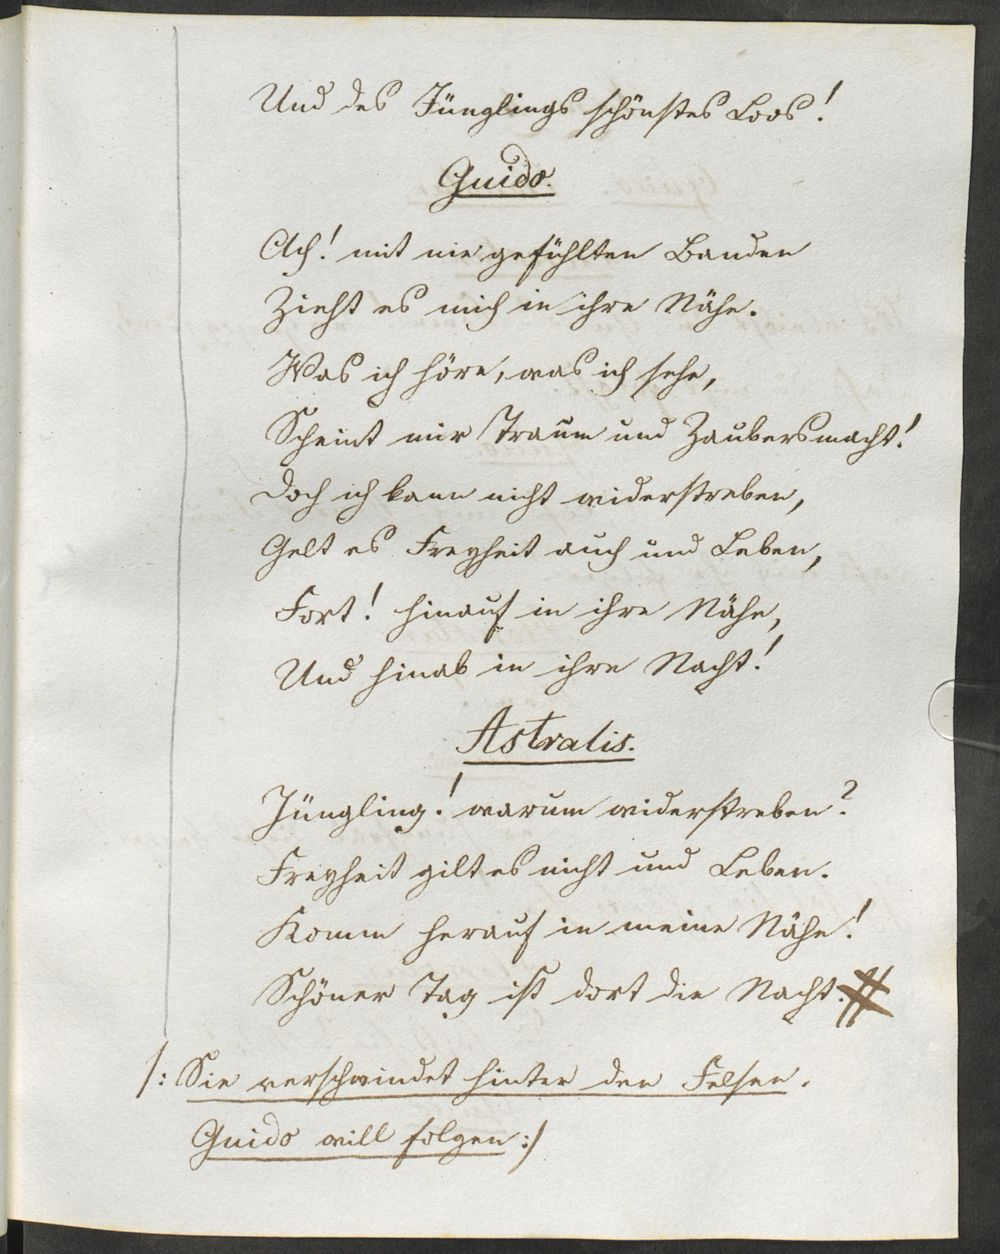 Und des Jünglings schönstes Loos!
Guido.
Ach! mit nie gefühlten Banden
Zieht es mich in ihre Nähe.
Was ich höre, was ich sehe,
Scheint mir Traum und Zaubersmacht!
Doch ich kann nicht widerstreben,
Gelt es Freyheit auch und Leben,
Fort! hinauf in ihre Nähe,
Und hinab in ihre Nacht!
Astralis.
Jüngling! warum widerstreben?
Freyheit gilt es nicht und Leben.
Komm herauf in meine Nähe!
Schöner Tag ist dort die Nacht. #
/: Sie verschwindet hinter den Felsen.
Guido will folgen :/